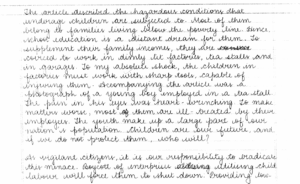 The article described the hazardous conditions that
underage children are subjected to. Most of them
belong to families living below the poverty line. Since
school education is a distant dream for them. To
supplement their family incomes, they are
to work in dimly lit factories, tea stalls and
in garages. To my absolute shock, the children in
factories must work with sharp tools, capable of
injuring them. Accompanying the article was a
photograph of a young boy employed in a tea stall
the pain in his eyes was heart-wrenching. To make
matters worse, most of them are ill-treated by their
employers. The youth make up a large part of our
nation's population. Children are our future, and
if we do not protect them, who will?
As vigilant citizens, it is our responsibility to eradicate
this menace. Boycott of enterprises utilising child
labour will force them to shut down. Providing